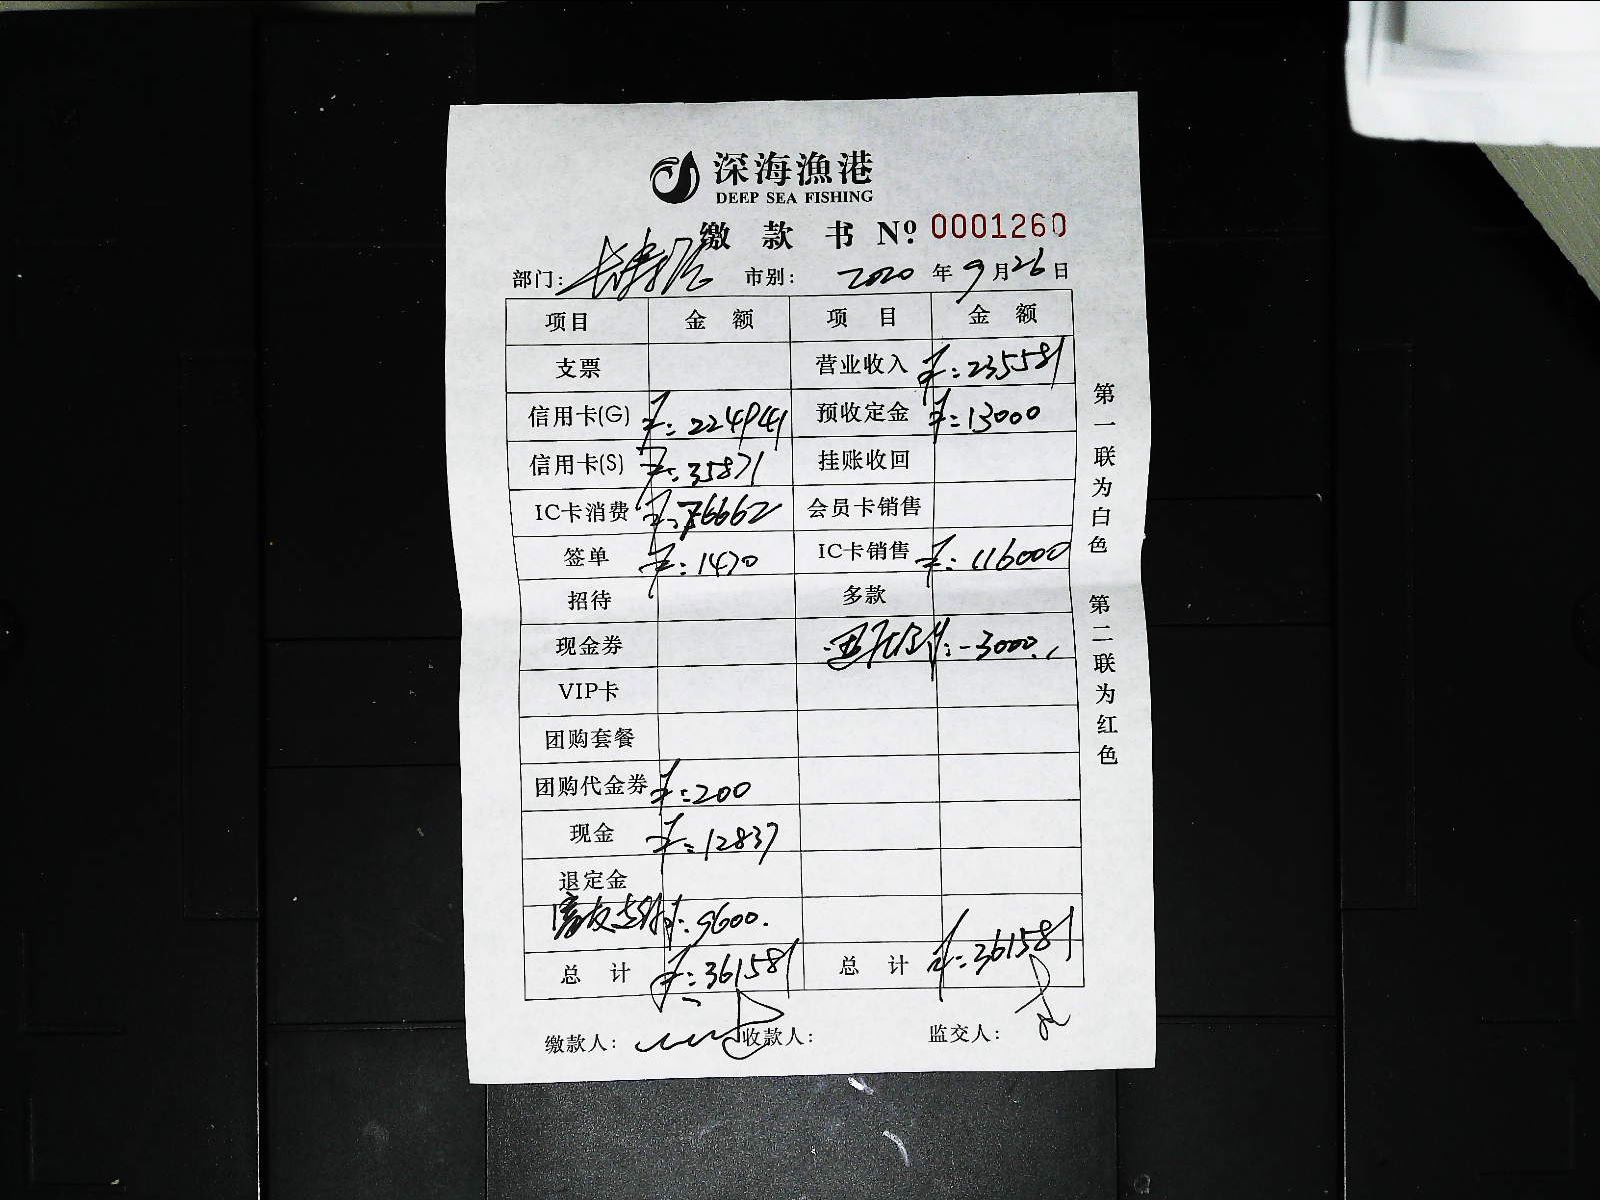 深海漁港
DEEP SEA FISHING
缴 款 书 Nº. 0001260
部门: 长寿路 市别: 2020 年 9 月 26 日
项目 金 额 项 目 金 额
支票 营业收入 ¥:235581
信用卡(G) ¥:224941 预收定金 ¥:13000
信用卡(S) ¥:35871 挂账收回
IC卡消费 ¥:76662 会员卡销售
签单 ¥:1470 IC卡销售 ¥:116000
招待 多款
现金券 :-3000.
VIP卡
团购套餐
团购代金券 ¥:200
现金 ¥:12837
退定金
支付:9600.
总 计 ¥:361581 总 计 ¥:361581
缴款人: 收款人: 监交人:
第一联为白色 第二联为红色